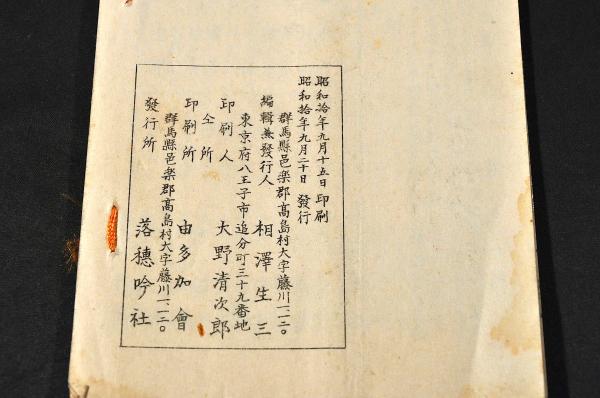 昭和拾年九月十五日 印刷
昭和拾年九月二十日 發行
群馬縣邑楽郡高島村大字藤川一、一二〇
編輯兼發行人 相澤生三
東京府八王子市追分町三十九番地
印刷人 大野清次郎
仝所
印刷所 由多加會
群馬縣邑楽郡高島村大字藤川一、一二〇
發行所 落穗吟社